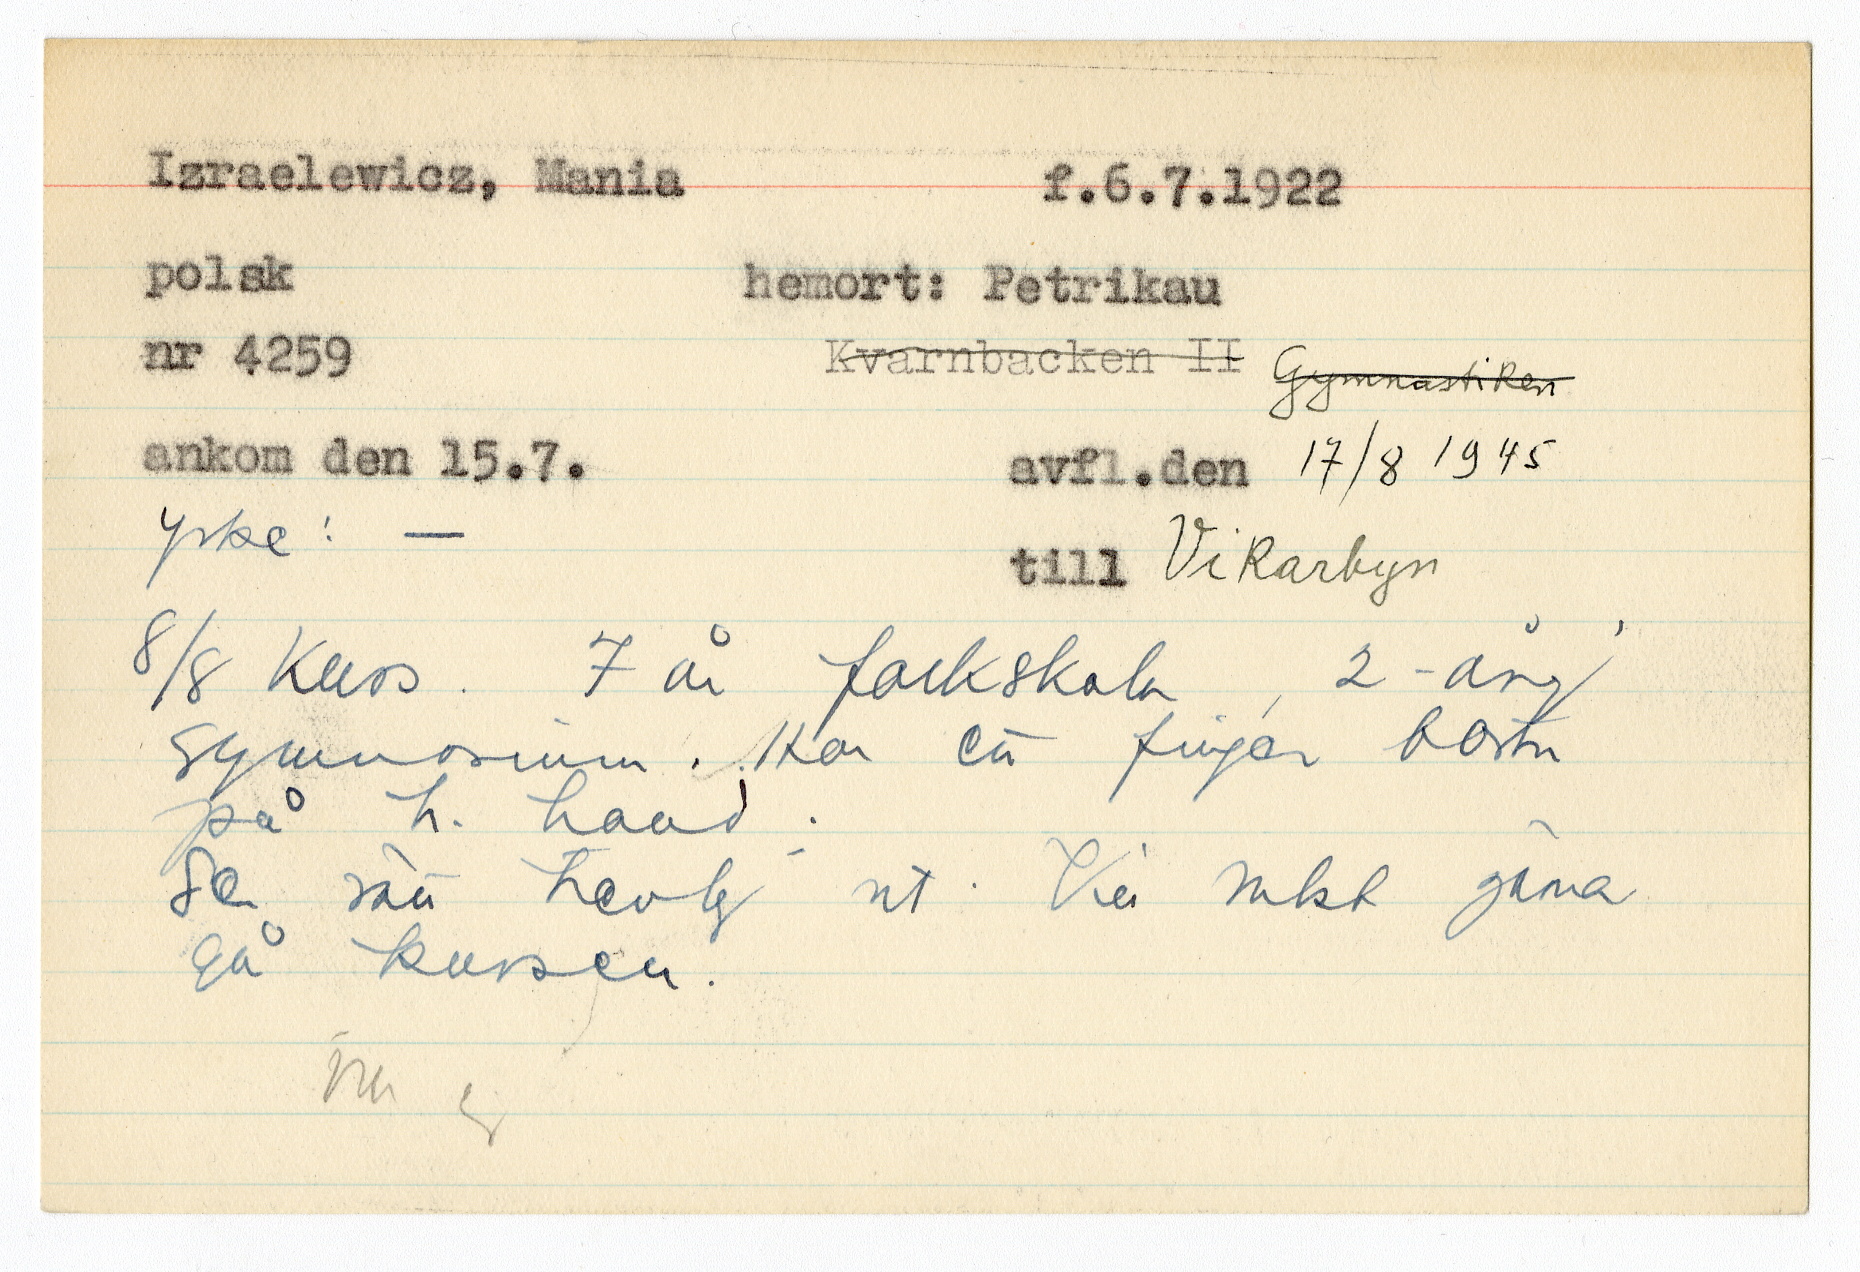 Izraelewicz, Mania f.6.7.1922
polsk hemort: Petrikau
nr 4259 Kvarnbacken II Gymnastiken
ankom den 15.7. avfl.den 17/8 1945
Yrke: — till Vikarbyn
8/8 Kurs. 7 år folkskola, 2-årig
gymnasium. Har en finger borta
på h. hand.
Ser ut. Vill mkt gärna
gå kursen.